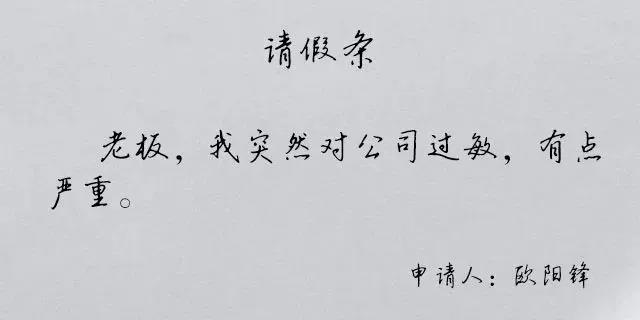 请假条
老板，我突然对公司过敏，有点
严重。
申请人：欧阳锋